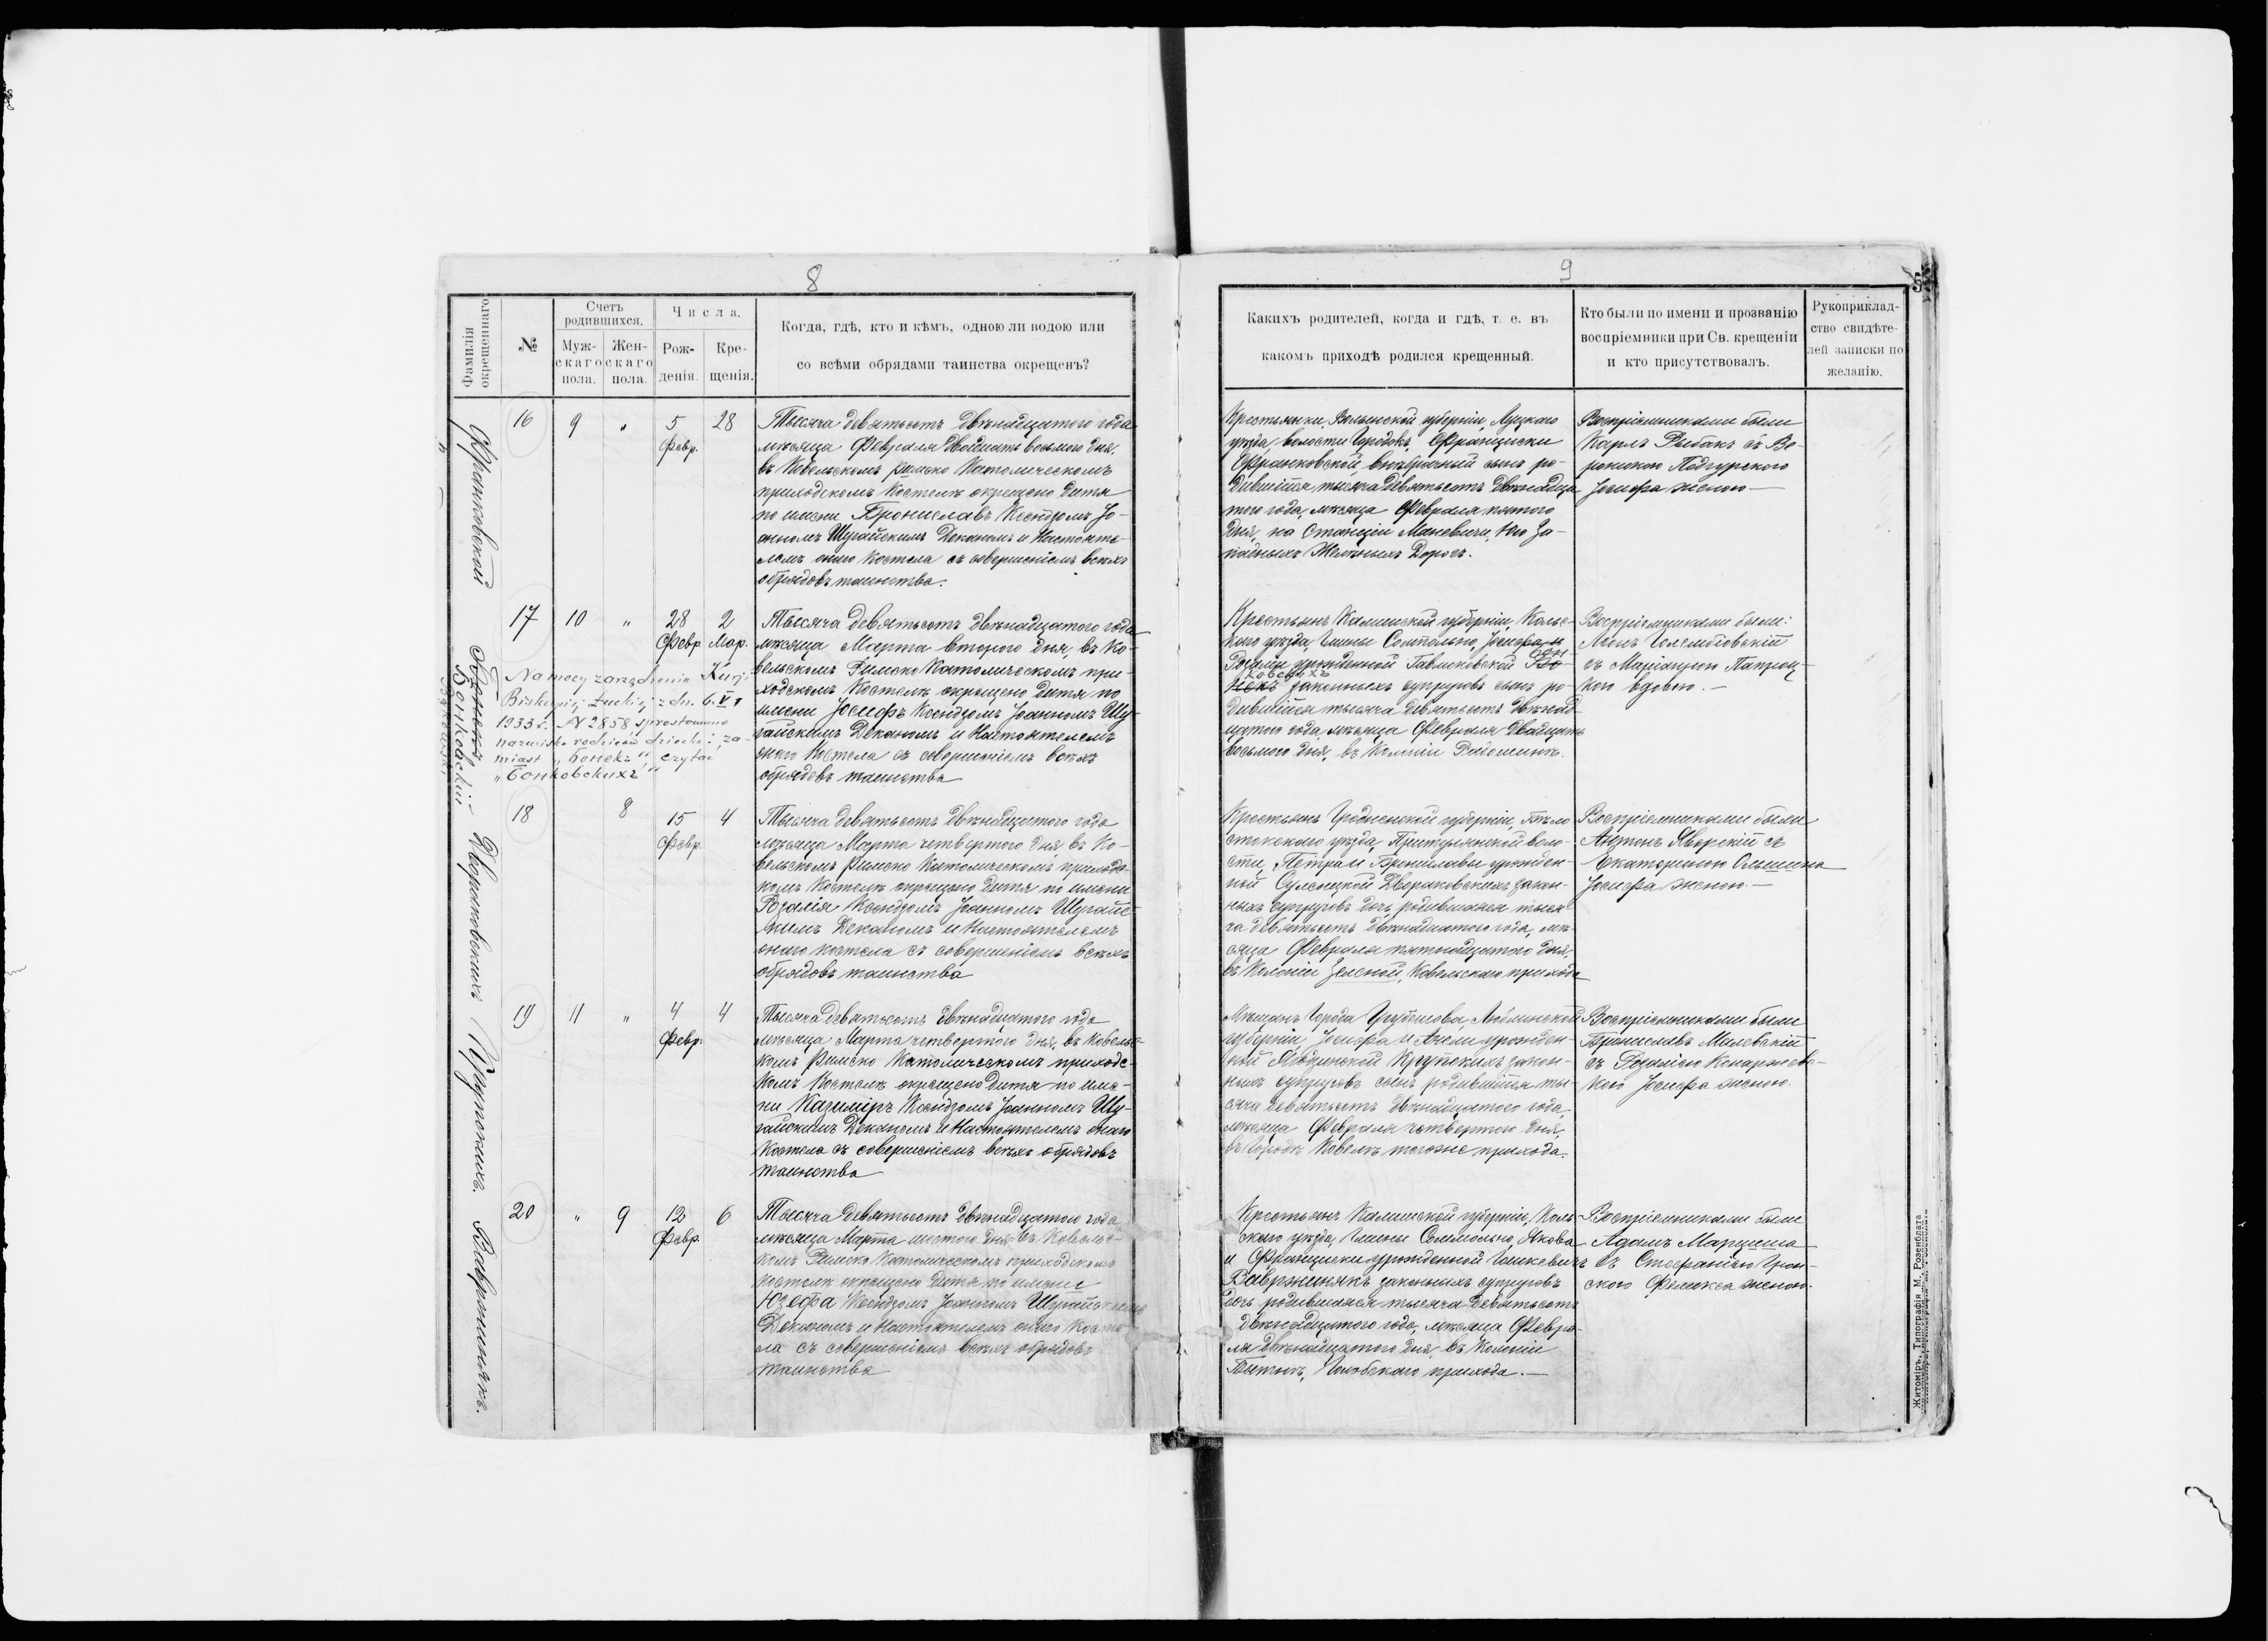 8
Фамилія окрещеннаго
№
Счетъ родившихся.
Муж-скаго пола.
Жен-скаго пола.
Числа.
Рож-денія.
Кре-щенія.
Когда, гдѣ, кто и кѣмъ, одною ли водою или
со всѣми обрядами таинства окрещенъ?
Франковской
16
9
„
5
Февр.
28
Тысяча девятьсотъ двѣнадцатого года
мѣсяца Февраля двадцать восьмого дня,
въ Ковельскомъ Римско Католическомъ
приходскомъ Костелѣ окрещено дитя
по имени Брониславъ Ксендзомъ Іо-
анномъ Шугайскимъ Деканомъ и Настояте-
лемъ онаго Костела съ совершеніемъ всѣхъ
обрядовъ таинства.
Бонковскій
17
10
„
28
Февр
2
Мар.
Na mocy zarządzenia Kurji
Biskupiej Łuckiej z dn. 6.V
1933 r. N 2858, sprostowano
nazwisko rodziców dziecka: za-
miast „Бонекъ", czytać
„Бонковскихъ"
Тысяча девятьсотъ двѣнадцатого года
мѣсяца Марта второго дня, въ Ко-
вельскомъ Римско Католическомъ при-
ходскомъ Костелѣ окрещено дитя по
имени Іосифъ Ксендзомъ Іоанномъ Шу-
гайскимъ Деканомъ и Настоятелемъ
онаго Костела съ совершеніемъ всѣхъ
обрядовъ таинства
Двораковскихъ
18
8
15
Февр.
4
Тысяча девятьсотъ двѣнадцатого года
мѣсяца Марта четвертого дня въ Ко-
вельскомъ Римско Католическомъ приходс-
комъ Костелѣ окрещено дитя по имени
Розалія Ксендзомъ Іоанномъ Шугайс-
кимъ Деканомъ и Настоятелемъ
онаго костела съ совершеніемъ всѣхъ
обрядовъ таинства
Крупскихъ.
19
11
„
4
Февр
4
Тысяча девятьсотъ двѣнадцатого года
мѣсяца Марта четвертого дня, въ Ковельс-
комъ Римско Католическомъ приходс-
комъ Костелѣ окрещено дитя по име-
ни Казиміръ Ксендзомъ Іоанномъ Шу-
гайскимъ Деканомъ и Настоятелемъ онаго
Костела съ совершеніемъ всѣхъ обрядовъ
таинства
Вавржинякъ.
20
„
9
12
Февр
6
Тысяча девятьсотъ двѣнадцатого года
мѣсяца Марта шестого дня въ Ковельс-
комъ Римско Католическомъ приходскомъ
костелѣ окрещено дитя по имени
Юзефа Ксендзомъ Іоанномъ Шугайскимъ
Деканомъ и Настоятелемъ онаго Косте-
ла съ совершеніемъ всѣхъ обрядовъ
таинства
9
5
Какихъ родителей, когда и гдѣ, т. е. въ
какомъ приходѣ родился крещенный.
Кто были по имени и прозванію
воспріемники при Св. крещеніи
и кто присутствовалъ.
Рукоприклад-
ство свидѣте-
лей записки по
желанію.
Крестьянки, Волынской губерніи, Луцкаго
уѣзда, волости Городокъ, Францишки
Франковской, внѣбрачный сынъ ро-
дившійся тысяча девятьсотъ двѣнадца
того года, мѣсяца Февраля пятого
дня, на Станціи Маневичи, Юго За-
падныхъ Желѣзныхъ Дорогъ.
Воспріемниками были
Карлъ Рыбакъ съ Ве-
роникою Подгурского
Іосифа женою —
Крестьянъ Калишской губерніи, Кольс-
каго уѣзда, гмины Сомпольно, Іосифа и
Розаліи урожденной Гавликовской Бон
ковскихъ
законныхъ супруговъ сынъ ро-
дившійся тысяча девятьсотъ двѣнад
цатого года, мѣсяца Февраля двадцать
восьмого дня, въ Колоніи Радошинъ.
Воспріемниками были:
съ Маріанною
кого вдовою. —
Крестьянъ Гродненской губерніи, Бѣло
стокскаго уѣзда, воло-
сти, Петра и Брониславы урожден-
ной Двораковскихъ закон-
ныхъ супруговъ дочь, родившаяся тыся-
ча девятьсотъ двѣнадцатого года, мѣ-
сяца Февраля пятнадцатого дня,
въ Колоніи Зеленой, Ковельскаго прихода
Воспріемниками были
Антонъ Яворскій съ
Екатериною
Іосифа женою —
Мѣщанъ города Грубешова, Люблинской
губерніи, Іосифа и Анели урожден-
ной Крупскихъ закон-
ныхъ супруговъ сынъ родившійся ты-
сяча девятьсотъ двѣнадцатого года,
мѣсяца Февраля четвертого дня,
въ городѣ Ковелѣ тогоже прихода.
Воспріемниками были
Брониславъ Малевскій
съ Розаліею
кого Іосифа женою.
Крестьянъ Калишской губерніи, Коль
скаго уѣзда, гмины Сомпольно, Якова
и Францишки урожденной
Вавржинякъ законныхъ супруговъ
дочь родившаяся тысяча девятьсотъ
двѣнадцатого года, мѣсяца Февра-
ля двѣнадцатого дня, въ Колоніи
прихода. —
Воспріемниками были
Адамъ
съ Стефаніею
ского Феликса женою.
Житоміръ, Типографія М. Розенблата